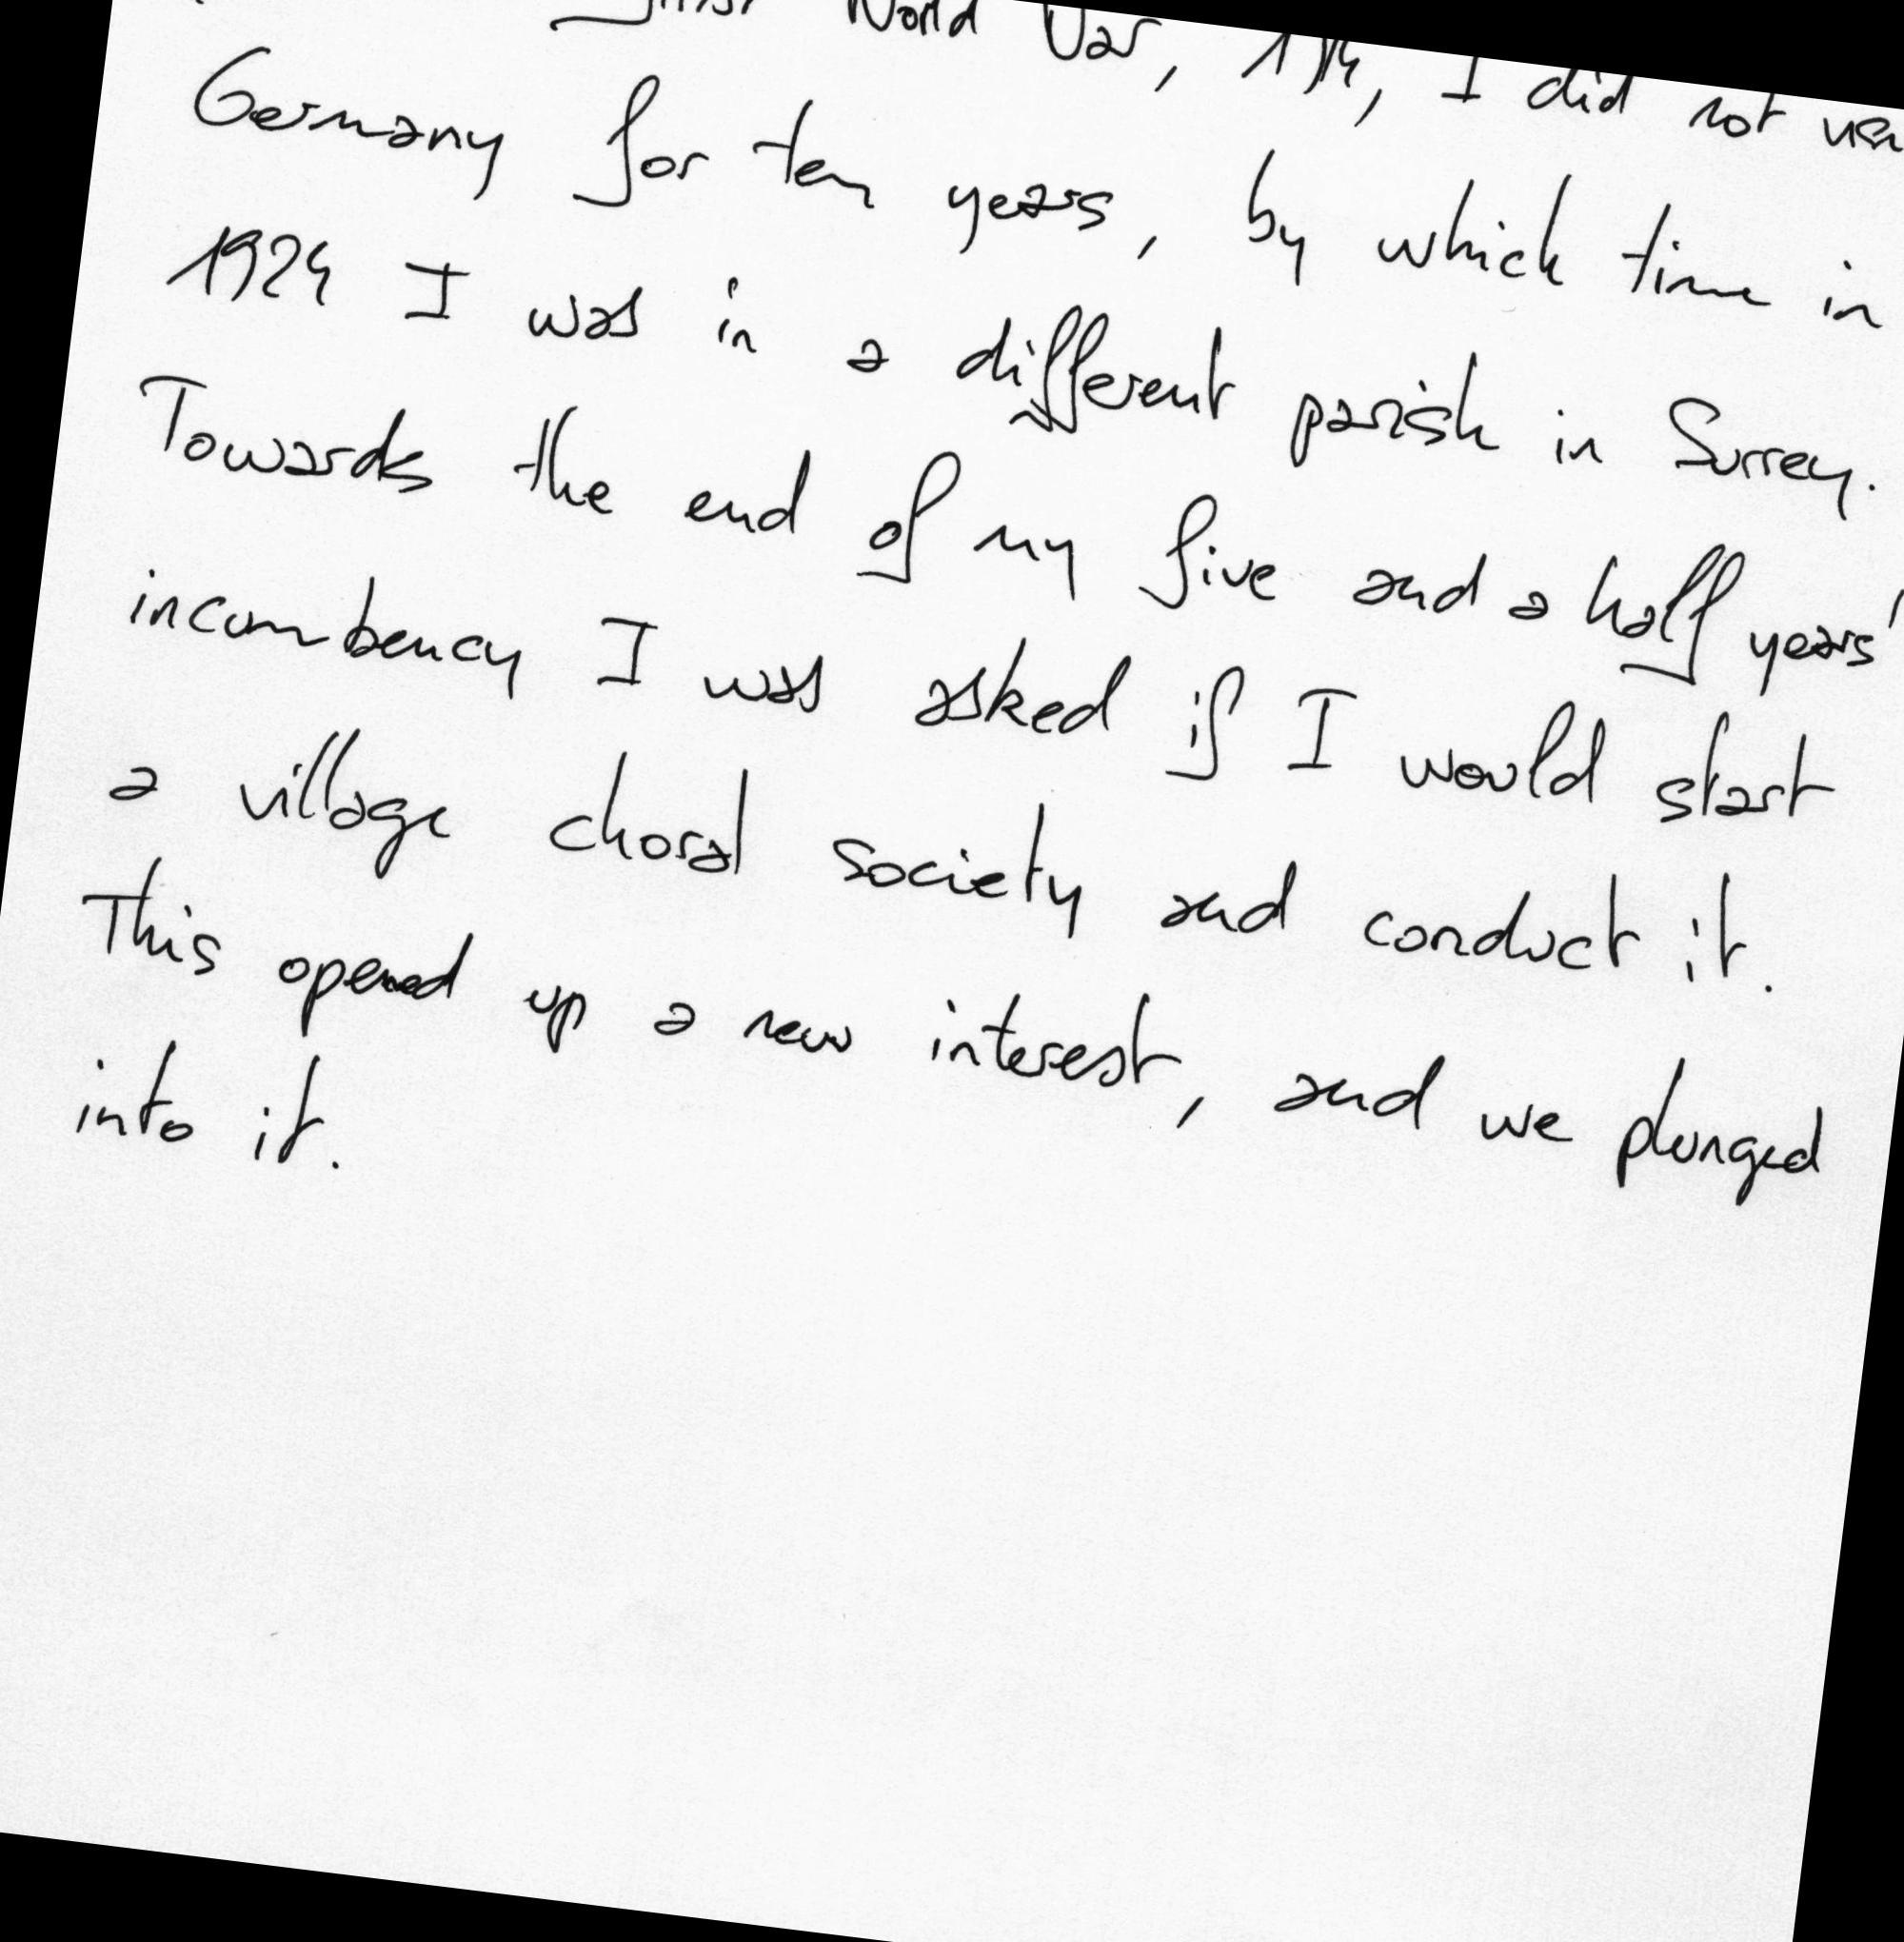 first World War, 1914, I did not
Germany for ten years, by which time in
1924 I was in a different parish in Surrey.
Towards the end of my five and a half years'
incumbency I was asked if I would start
a village choral society and conduct it.
This opened up a new interest, and we plunged
into it.